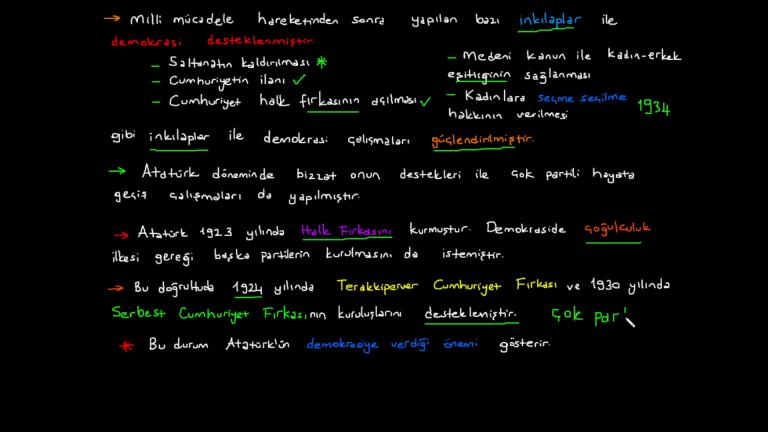 → Milli mücadele hareketinden sonra yapılan bazı inkılaplar ile
demokrasi desteklenmiştir.
– Saltanatın kaldırılması *
– Cumhuriyetin ilanı ✓
– Cumhuriyet halk fırkasının açılması ✓
– Medeni kanun ile kadın-erkek
eşitliğinin sağlanması
– Kadınlara seçme seçilme 1934
hakkının verilmesi
gibi inkılaplar ile demokrasi çalışmaları güçlendirilmiştir.
→ Atatürk döneminde bizzat onun destekleri ile çok partili hayata
geçiş çalışmaları da yapılmıştır.
→ Atatürk 1923 yılında Halk Fırkasını kurmuştur. Demokraside çoğulculuk
ilkesi gereği başka partilerin kurulmasını da istemiştir.
→ Bu doğrultuda 1924 yılında Terakkiperver Cumhuriyet Fırkası ve 1930 yılında
Serbest Cumhuriyet Fırkasının kuruluşlarını desteklemiştir. Çok par
* Bu durum Atatürk'ün demokrasiye verdiği önemi gösterir.